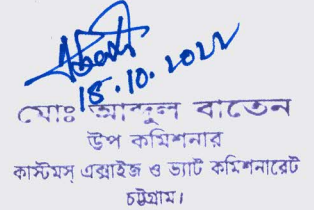 18.10.2022
মোঃ আব্দুল বাতেন
উপ কমিশনার
কাস্টমস্ এক্সাইজ ও ভ্যাট কমিশনারেট
চট্টগ্রাম।